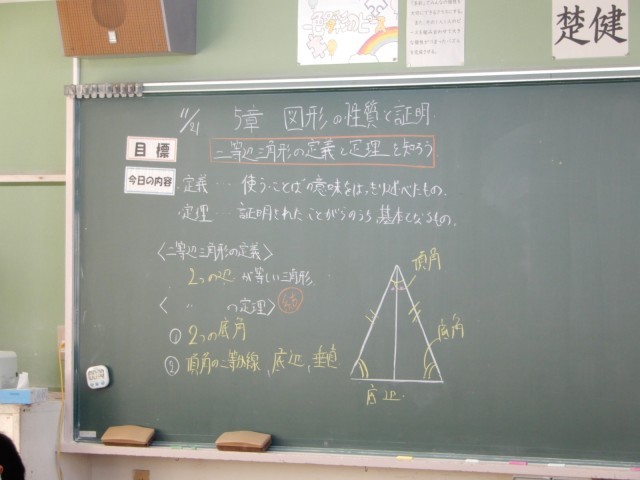 楚健
11/21 5章 図形の性質と証明
目標
二等辺三角形の定義と定理を知ろう
今日の内容
・定義… 使うことばの意味をはっきり述べたもの.
・定理… 証明されたことがらのうち,基本となるもの.
〈二等辺三角形の定義〉
2つの辺が等しい三角形.
〈 〃 の定理〉
① 2つの底角
② 頂角の二等分線,底辺,垂直
頂角
底角
底辺